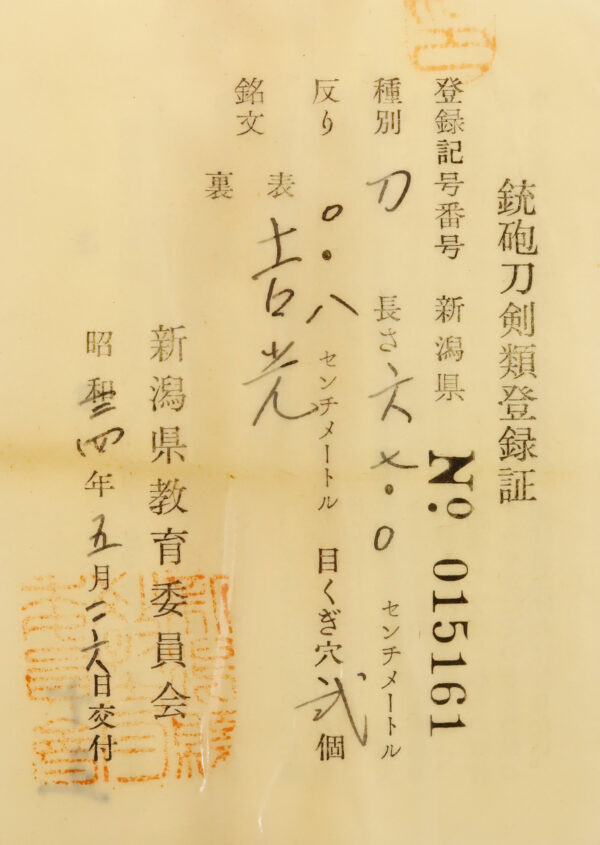 銃砲刀剣類登録証
登録記号番号 新潟県 No. 015161
種別 刀 長さ 六七.0 センチメートル
反り 0.八 センチメートル 目くぎ穴 弐 個
銘文 表 吉光
裏
新潟県教育委員会
昭和三四年五月二六日交付